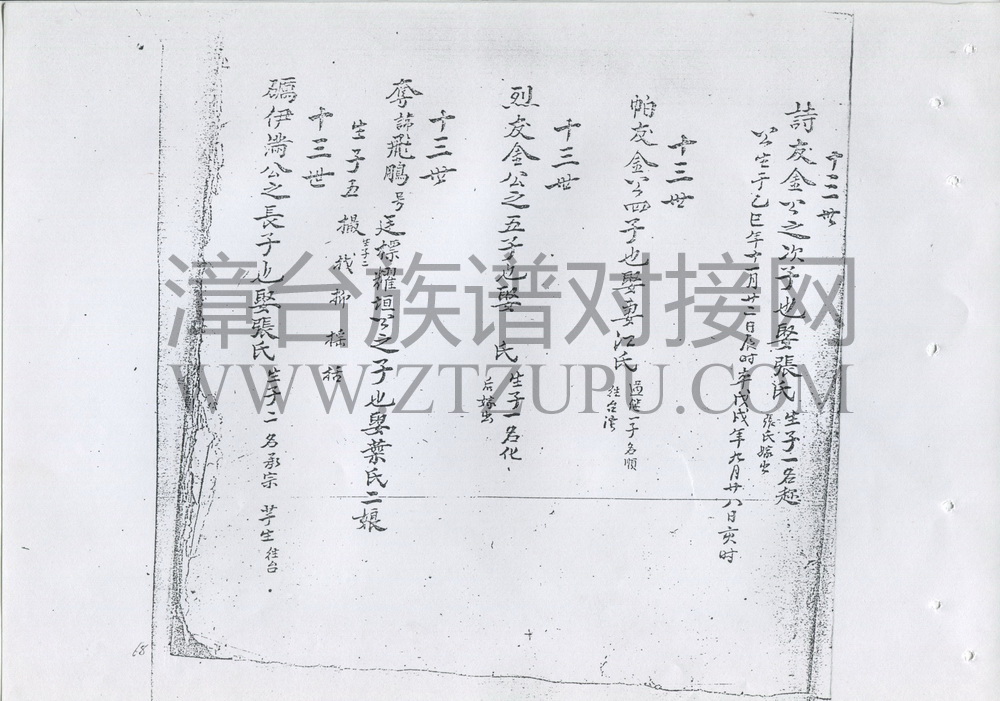 十三世
詩友金公之次子也娶張氏生子一名
張氏嫁出
公生于乙巳年十一月廿二日辰时卒戊戌年九月廿八日亥时
十三世
帕友金公四子也娶妻江氏
過継一子名順
往台湾
十三世
烈友金公之五子也娶 氏生子一名化
后嫁出
十三世
奪諱飛鵬号廷標耀垣公之子也娶葉氏二娘
生子二
生子五 撮 栽 抑 搖 括
十三世
礪伊满公之長子也娶張氏生子二名承宗 芋生往台
漳台族谱对接网
WWW.ZTZUPU.COM
68